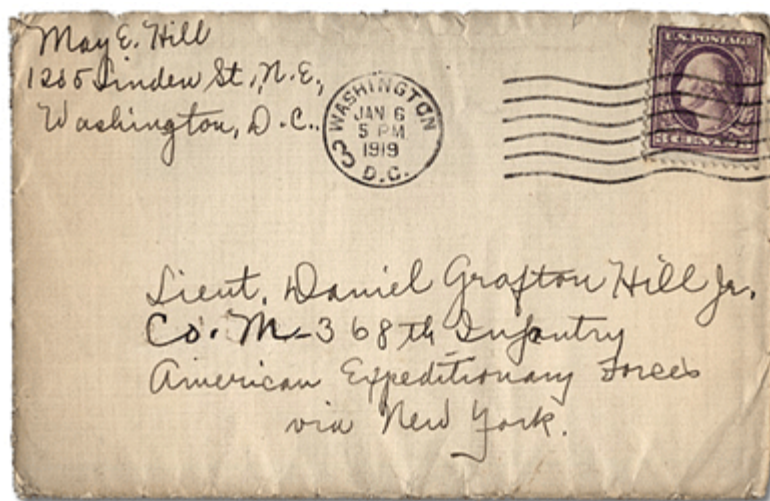 May E. Hill
1205 Linden St., N.E.,
Washington, D.C..
WASHINGTON
JAN 6
5 PM
1919
3
D.C.
U.S. POSTAGE
3 CENTS 3
Lieut. Daniel Grafton Hill Jr.
Co. M-368th Infantry
American Expeditionary Forces
via New York.